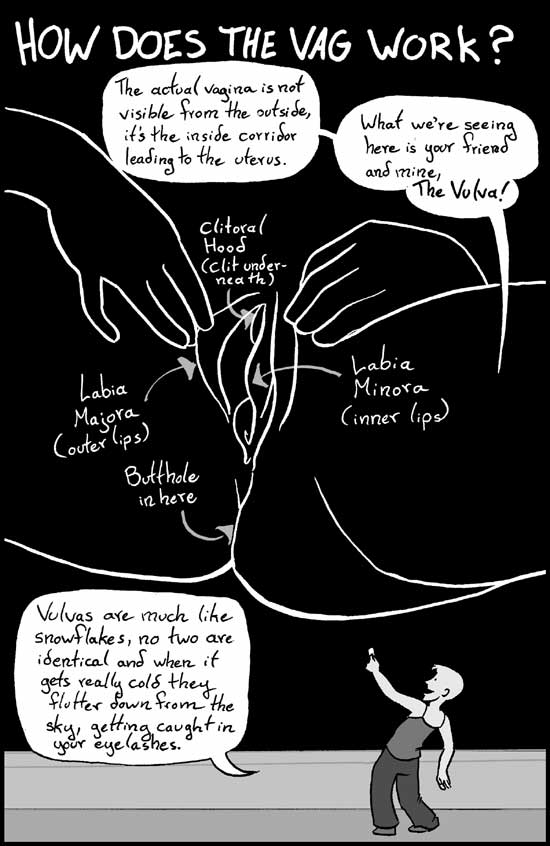 HOW DOES THE VAG WORK?
The actual vagina is not
visible from the outside,
it's the inside corridor
leading to the uterus.
What we're seeing
here is your friend
and mine,
The Vulva!
Clitoral
Hood
(clit under-
neath)
Labia
Majora
(outer lips)
Labia
Minora
(inner lips)
Butthole
in here
Vulvas are much like
snowflakes, no two are
identical and when it
gets really cold they
flutter down from the
sky, getting caught in
your eyelashes.